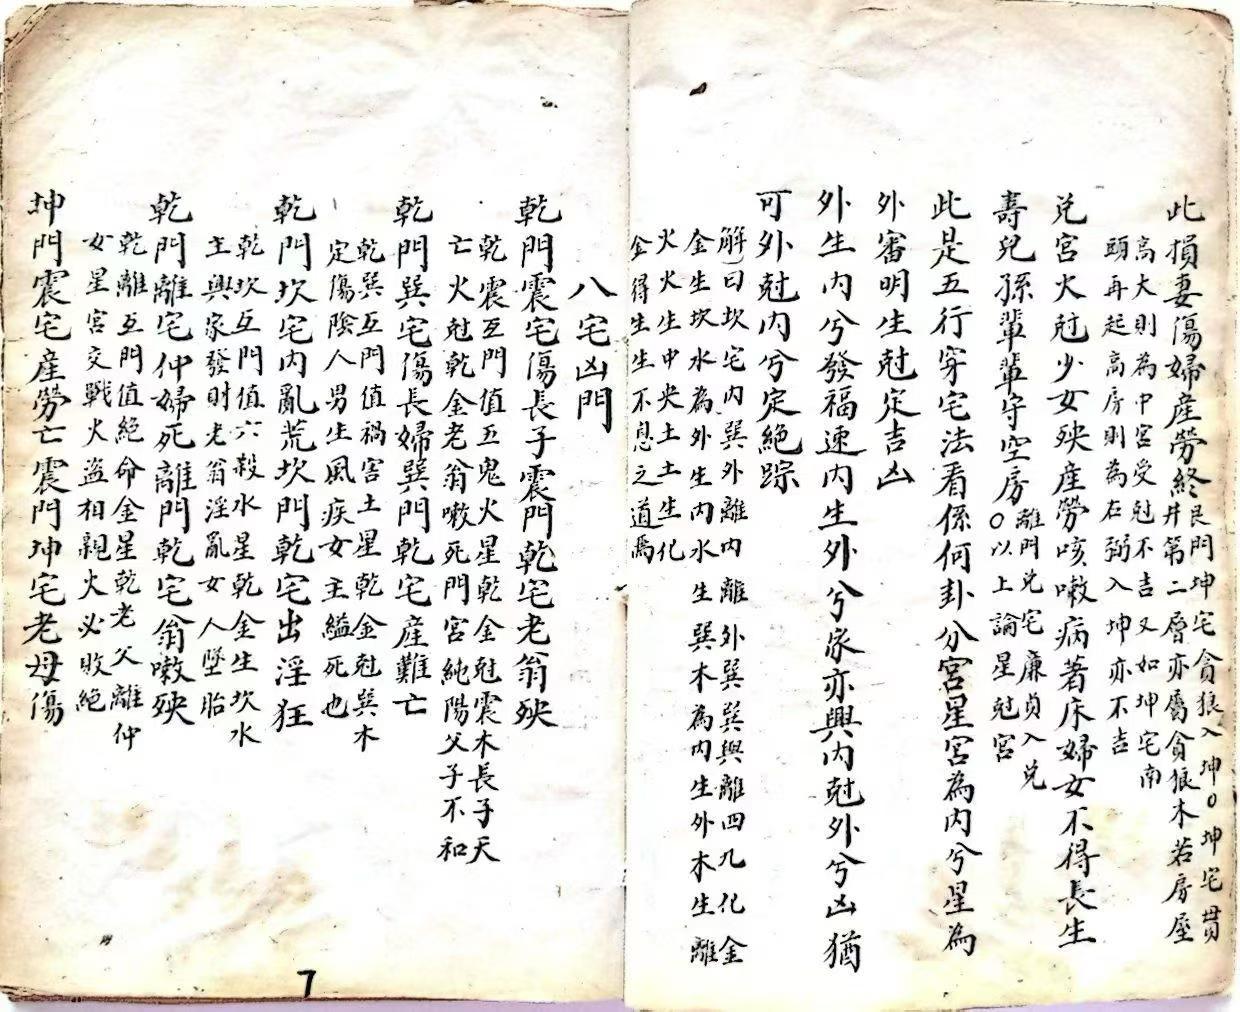 此損妻傷婦産勞終
艮門坤宅貪狼入坤○坤宅貫
井第二層亦屬貪狼木若房屋
高大則為中宮受尅不吉又如坤宅南
頭再起高房則為右弼入坤亦不吉
兑宮火尅少女殃産勞咳嗽病著床婦女不得長生
壽兒孫輩輩守空房
離門兑宅廉貞入兑
○以上論星尅宮
此是五行穿宅法看係何卦分宮星宮為内兮星為
外審明生尅定吉凶
外生内兮發福速内生外兮家亦興内尅外兮凶猶
可外尅内兮定絶踪
解曰坎宅内巽外離内離外巽巽與離四九化金
金生坎水為外生内水生巽木為内生外木生離
火火生中央土土生化
金得生生不息之道焉
八宅凶門
乾門震宅傷長子震門乾宅老翁殃
乾震互門值五鬼火星乾金尅震木長子夭
亡火尅乾金老翁嗽死門宮純陽父子不和
乾門巽宅傷長婦巽門乾宅産難亡
乾巽互門值禍害土星乾金尅巽木
定傷陰人男生風疾女主縊死也
乾門坎宅内亂荒坎門乾宅出淫狂
乾坎互門值六殺水星乾金生坎水
主興家發財老翁淫亂女人墜胎
乾門離宅仲婦死離門乾宅翁嗽殃
乾離互門值絶命金星乾老父離仲
女星宮交戰火盗相親火必敗絶
坤門震宅産勞亡震門坤宅老母傷
7